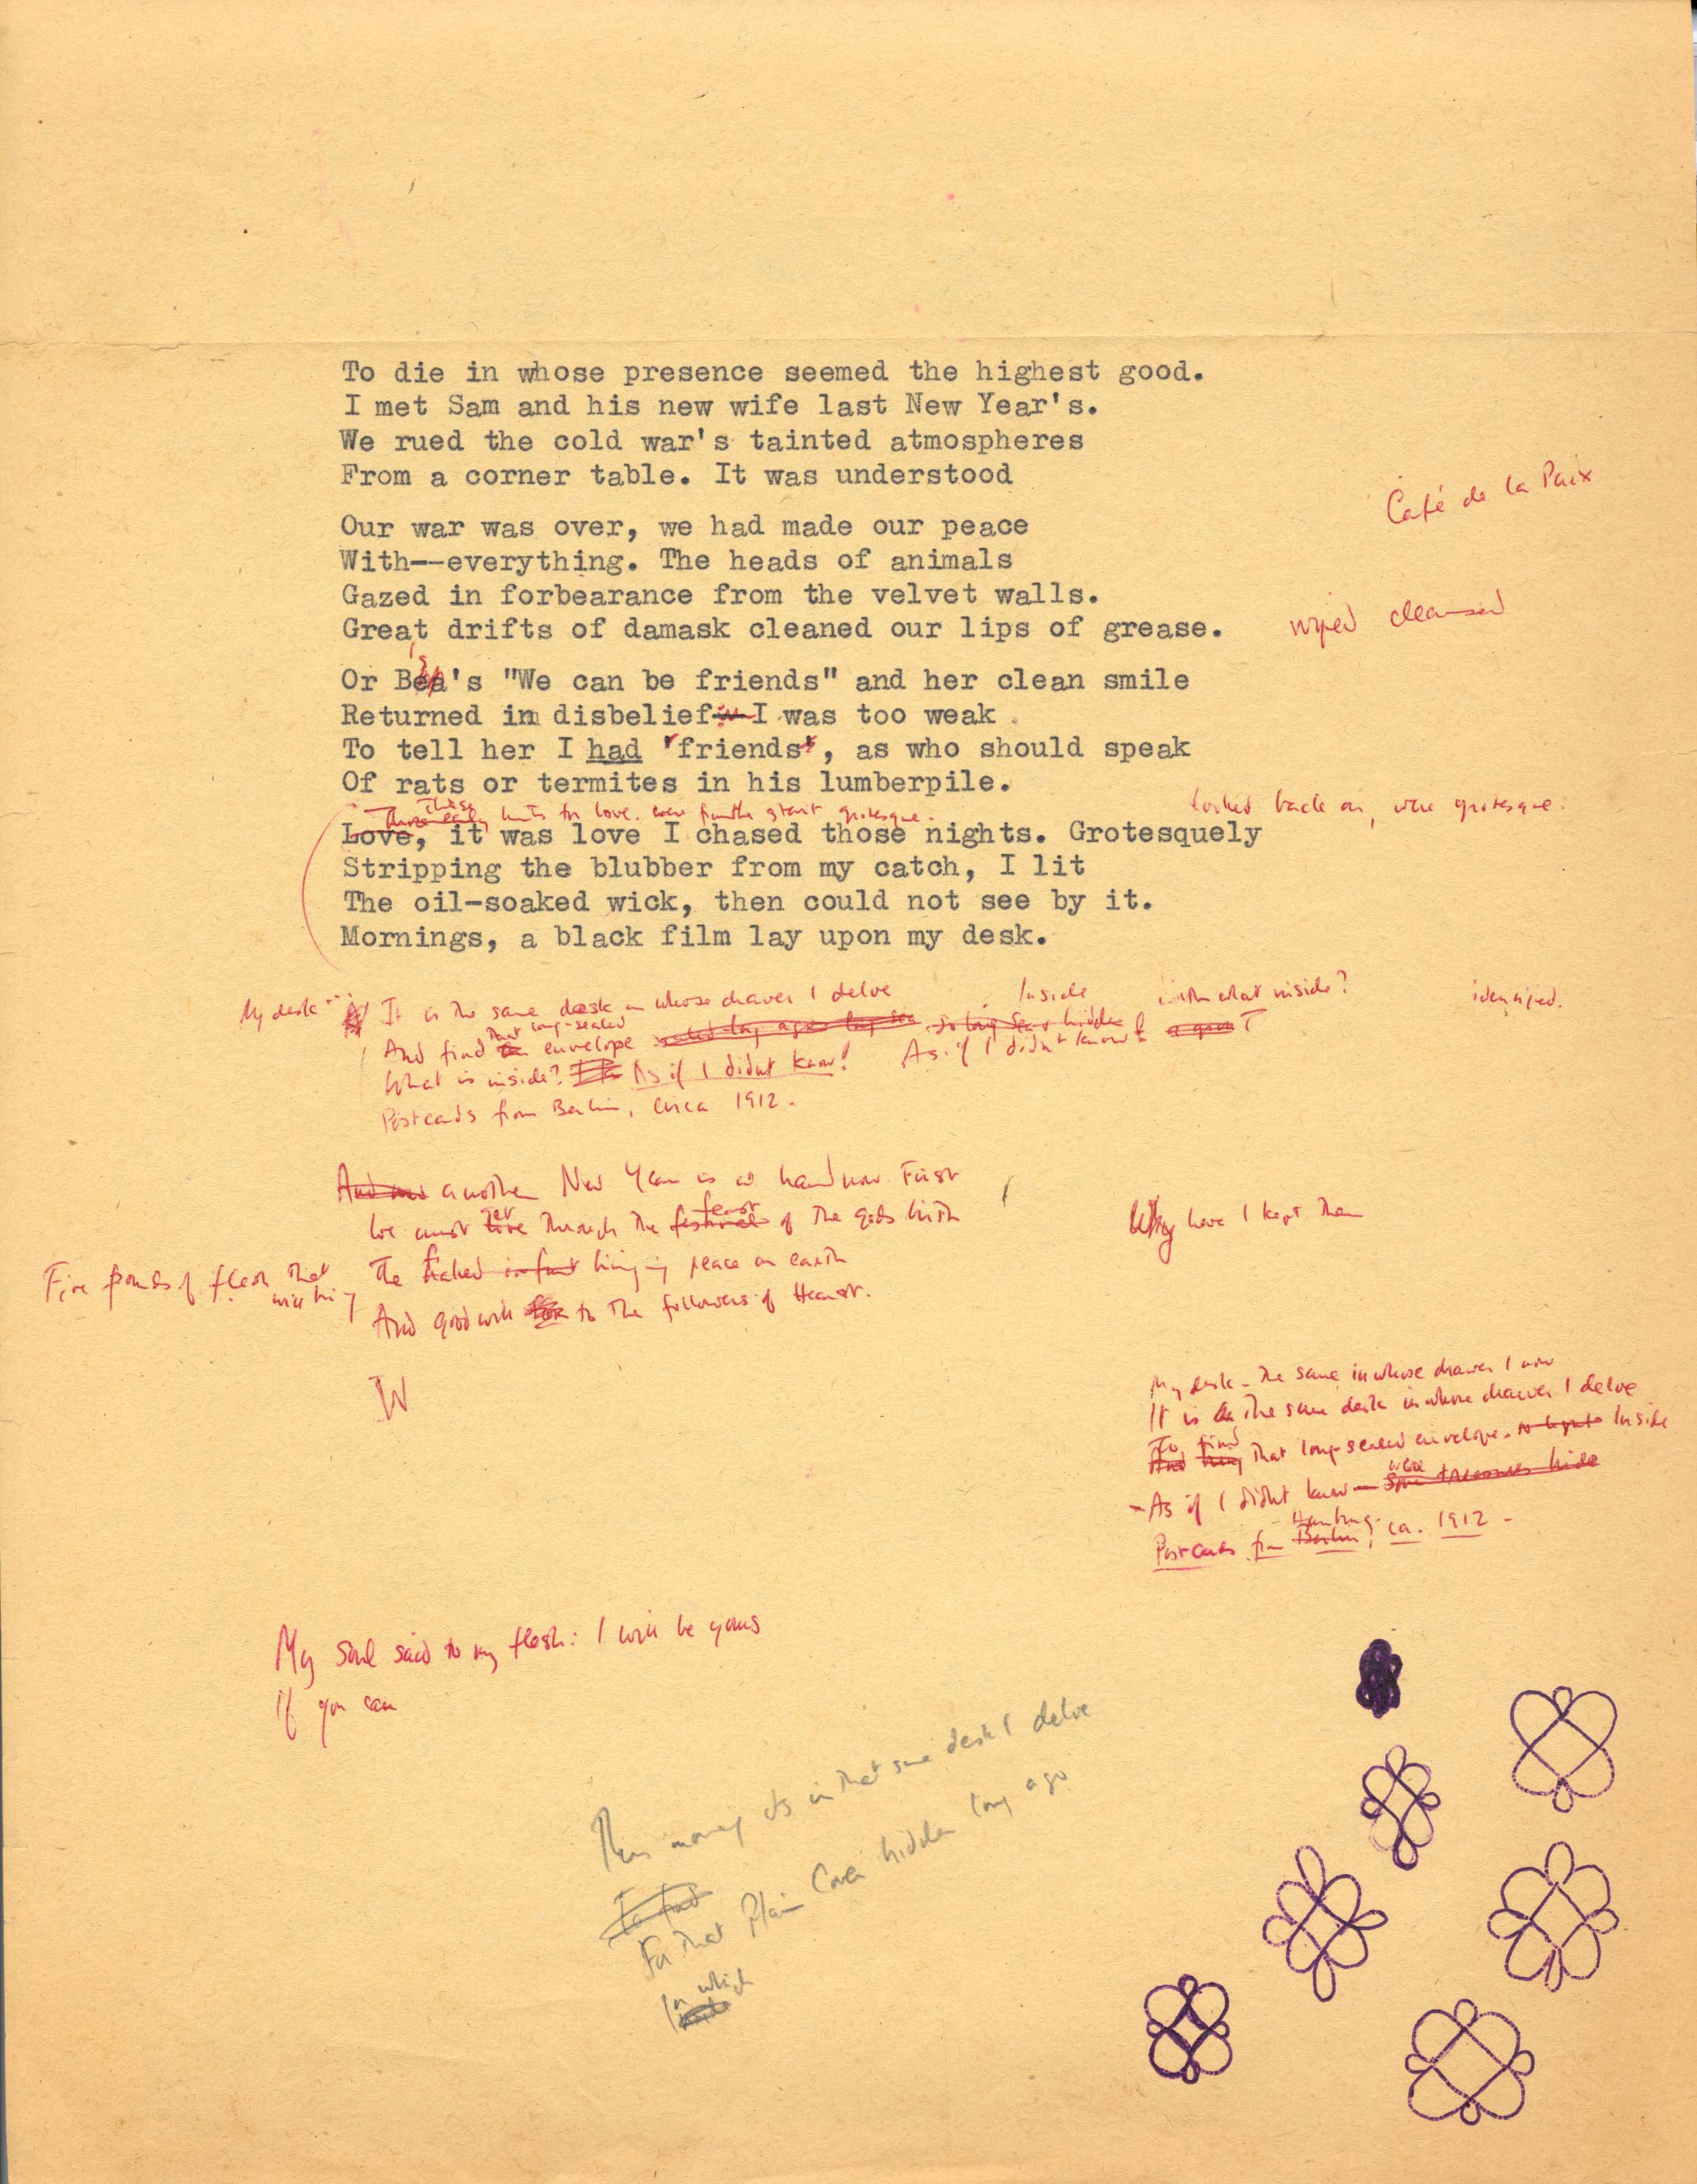 To die in whose presence seemed the highest good.
I met Sam and his new wife last New Year's.
We rued the cold war's tainted atmospheres
From a corner table. It was understood
Café de la Paix
Our war was over, we had made our peace
With--everything. The heads of animals
Gazed in forbearance from the velvet walls.
Great drifts of damask cleaned our lips of grease.
wiped cleansed
Or Bea's "We can be friends" and her clean smile
Returned in disbelief I was too weak
To tell her I had 'friends', as who should speak
Of rats or termites in his lumberpile.
These early hunts for love were from the start grotesque.
looked back on, were grotesque.
Love, it was love I chased those nights. Grotesquely
Stripping the blubber from my catch, I lit
The oil-soaked wick, then could not see by it.
Mornings, a black film lay upon my desk.
My desk
It is the same desk in whose drawer I delve
Inside
with what inside?
And find that long-sealed envelope
What is inside? As if I didnt know!
As if I didn't know
Postcards from Berlin, circa 1912.
And now another New Year is at hand now First
We must get through the feast festival of the gods birth
Why have I kept them
The naked infant bringing peace on earth
Five pounds of flesh that will bring
And goodwill to the followers of Hearst.
W
My desk - the same in whose drawer I now
It is the same desk in whose drawer I delve
To find
And that long-sealed envelope. Inside
- As if I didnt know - were some treasures hide
Hamburg
Postcards from Berlin, ca. 1912 -
My soul said to my flesh: I will be yours
If you can
in that same desk I delve
To find
For that plain cover hidden long ago
In which